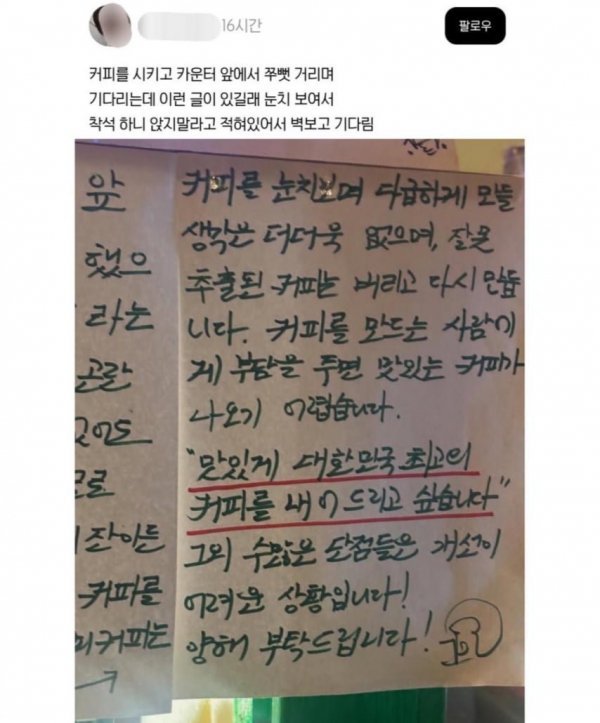 16시간
팔로우
커피를 시키고 카운터 앞에서 쭈뼛 거리며
기다리는데 이런 글이 있길래 눈치 보여서
착석 하니 앉지말라고 적혀있어서 벽보고 기다림
앞
했으
라는
곤란
로
잔이든
커피를
커피는
커피를 눈치보며 다급하게 만들
생각은 더더욱 없으며, 잘못
추출된 커피는 버리고 다시 만듭
니다. 커피를 만드는 사람에
게 부담을 주면 맛있는 커피가
나오기 어렵습니다.
"맛있게 대한민국 최고의
커피를 내어 드리고 싶습니다"
그외 수많은 단점들은 개선이
어려운 상황입니다!
양해 부탁드립니다!